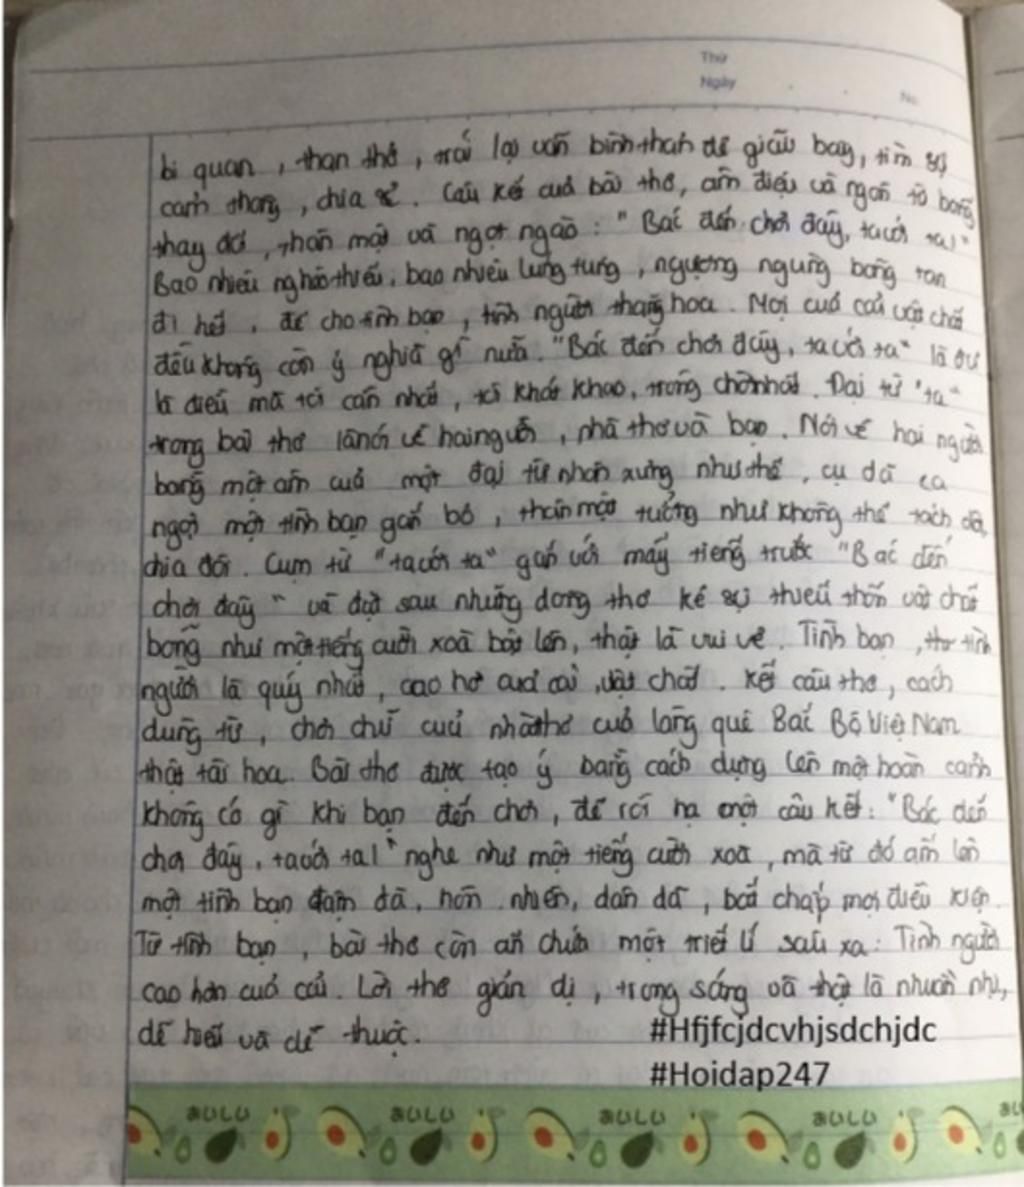 Thứ
Ngày
No.
bi quan, than thở, trái lại vẫn bình thản để giãi bày, tìm sự
cảnh thông, chia sẻ. Câu kết cuả bài thơ, âm điệu và ngôn từ bỗng
thay đổi, thân mật và ngọt ngào: "Bác đến chơi đây, ta với ta!"
Bao nhiêu nghèo thiếu, bao nhiêu lúng túng, ngượng ngùng bỗng tan
đi hết, để cho tình bạn, tình người thăng hoa. Mọi cuả cải vật chất
đều không còn ý nghĩa gì nữa. "Bác đến chơi đây, ta với ta" là
là điều mà tôi cần nhất, tôi khát khao, trông chờ nhất. Đại từ "ta"
trong bài thơ là nói về hai người, nhà thơ và bạn. Nói về hai người
bằng một âm cuả một đại từ nhân xưng như thế, cụ đã ca
ngợi một tình bạn gắn bó, thân mật tưởng như không thể tách rời,
chia đôi. Cụm từ "ta với ta" gắn với mấy tiếng trước "Bác đến
chơi đây" và đặt sau những dòng thơ kể sự thiếu thốn vật chất
bỗng như một tiếng cười xoà bật lên, thật là vui vẻ. Tình bạn, thứ tình
người là quý nhất, cao hơ cuả cải, vật chất. Kết cấu thơ, cách
dùng từ, chơi chữ cuả nhà thơ cuả làng quê Bắc Bộ Việt Nam
thật tài hoa. Bài thơ được tạo ý bằng cách dựng lên một hoàn cảnh
không có gì khi bạn đến chơi, để rồi hạ một câu kết: "Bác đến
chơi đây, ta với ta!" nghe như một tiếng cười xoà, mà từ đó ấm lên
một tình bạn đậm đà, hồn nhiên, dân dã, bất chấp mọi điều kiện
Từ tình bạn, bài thơ còn ẩn chứa một triết lí sâu xa: Tình người
cao hơn cuả cải. Lời thơ giản dị, trong sáng và thật là nhuần nhị,
dễ hiểu và dễ thuộc.
#Hfjfcjdcvhjsdchjdc
#Hoidap247